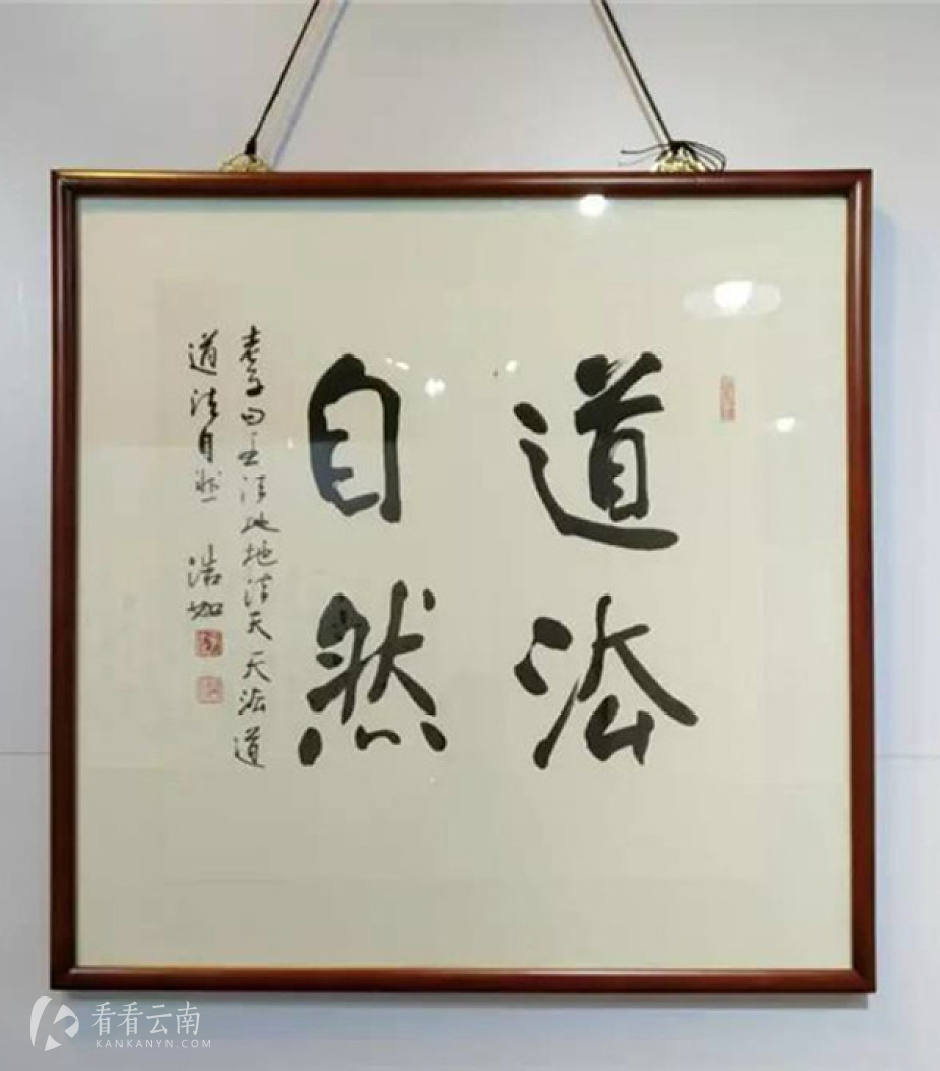 道法
自然
老子曰王法地地法天天法道
道法自然 浩
看看云南
KANKANYN.COM